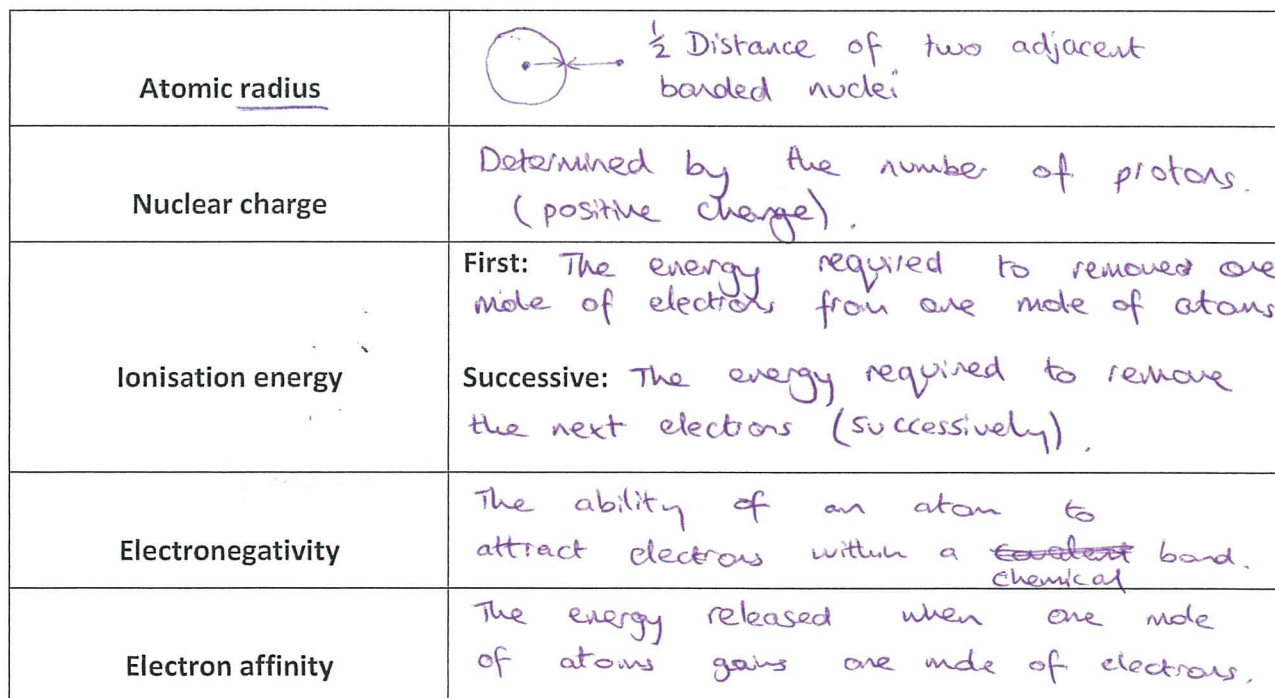 Atomic radius
½ Distance of two adjacent
bonded nuclei
Nuclear charge
Determined by the number of protons.
(positive charge).
Ionisation energy
First: The energy required to removed one
mole of electrons from one mole of atoms
Successive: The energy required to remove
the next electrons (successively).
Electronegativity
The ability of an atom to
attract electrons within a covalent bond.
chemical
Electron affinity
The energy released when one mole
of atoms gains one mole of electrons.